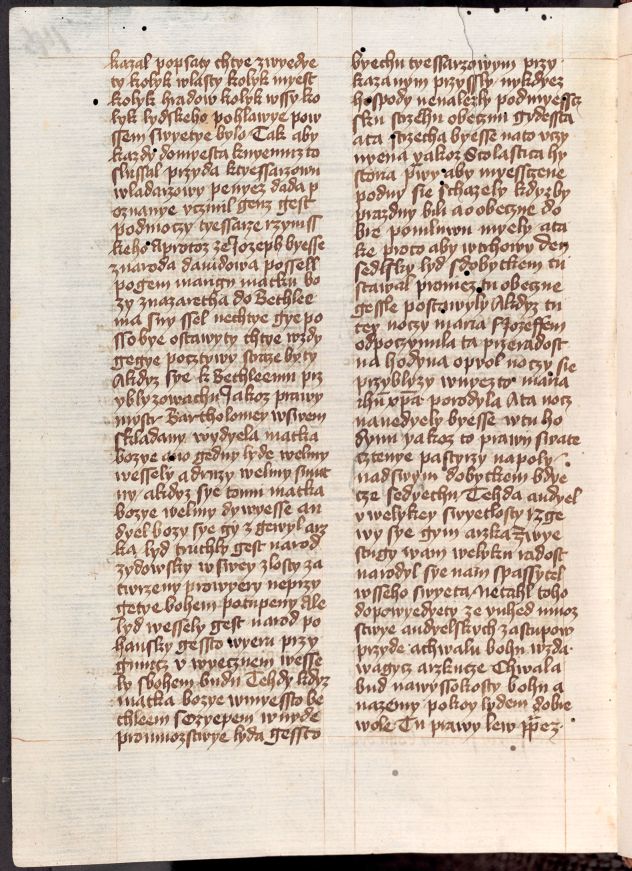 kazal popsaty chtye zwyedye
ty kolyk wlasty kolyk myest
kolyk hradow kolyk wssy ko
lyk lydskeho pohlawye pow
ssem swyetye bylo Tak aby
kazdy domyesta knyemuz to
slussal przyda ktyessarzowu
wladarzowy penyez dada p
oznanye vczinil genz gest
podmoczy tyessarze rzymss
keho Aprotoz ze Jozeph byesse
znaroda dauidowa possell
pogem marygy matku bo
zy znazaretha do Bethlee
ma sny ssel nechtye gye po
sso bye ostawyty chtye wzdy
gegye pocztywy straze byty
Akdyz sye k Bethleemu prz
yblyzowachu Jakoz prawy
mystr Bartholomiey wswem
skladany wydyela matka
bozye ano gedny lyde welmy
wessely a druzy welmy smut
ny akdyz sye tomu matka
bozye welmy dywyesse an
dyel bozy sye gy zgewyl arz
ka lyd truchly gest narod
zydowsky wswey zlosty za
twrzeny prowyery neprzy
getye bohem potupeny Ale
lyd wessely gest narod po
hansky gessto wyeru przy
gmucz v wyecznem wesse
ly sbohem budu Tehdy kdyz
matka bozye wmyesto be
thleem sozyepem wnyde
promnozstwye lyda gessto
byechu tyessarzowym przy
kazanym przyssly nykdyez
hospody nenalezly podmyessz
sku strzechu obecznu gydesta
ata strzecha byesse nato vczy
nyena yakoz Stolastica hy
storia pwy aby myessczene
podnu sie schazely kdyzby
prazdny bily a o obeczne do
bre pomluwu myely ata
ke proto aby wtrhowy den
sedlsky lyd sdobytkem tu
stawal prinicz tu obeczne
gesle postawyly Akdyz tu
tey noczy maria sJozeffem
odpoczynula ta przeradost
na hodyna opyol noczy sie
przyblyzy wnyezto maria
ihm xpa porodyla Ata nocz
nauedyely byesse wtu ho
dynu yakoz to prawy swate
cztenye pastyrzy napoly
nadswym dobytkem bdye
cze sedyechu Tehda andyel
v welykey swyetlosty szge
wy sye gym arzka zwye
stugy wam welyku radost
narodyl sye nam spassytel
wsseho swyeta Netahl toho
dopowyedyety ze vnhed mnoz
stwye andyelskych zastupow
przyde achwalu bohu wzda
wagycz arzkucze Chwala
bud nawyssokosty bohu a
nazemy pokoy lydem dobre
wole Tu prawy lew ppez